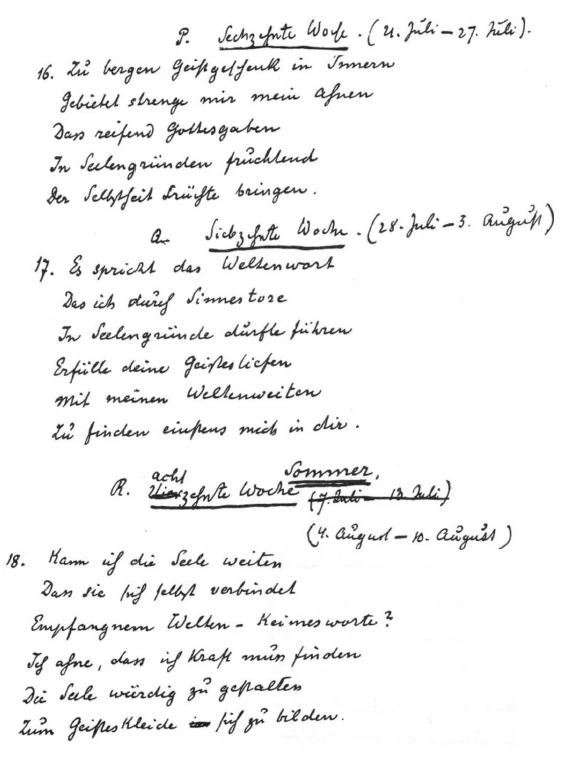 P. Sechzehnte Woche. (21. Juli – 27. Juli).
16. Zu bergen Geistgeschenk in Innern
Gebietet strenge mir mein Ahnen
Dass reifend Gottesgaben
In Seelengründen fruchtend
Der Selbstheit Früchte bringen.
Q. Siebzehnte Woche. (28. Juli – 3. August)
17. Es spricht das Weltenwort
Das ich durch Sinnestore
In Seelengründe durfte führen
Erfülle deine Geistestiefen
Mit meinen Weltenweiten
Zu finden einstens mich in dir.
Sommer,
R. acht Vierzehnte Woche (7. Juli – 13. Juli)
(4. August – 10. August)
18. Kann ich die Seele weiten
Dass sie sich selbst verbindet
Empfangnem Welten-Keimesworte?
Ich ahne, dass ich Kraft muss finden
Die Seele würdig zu gestalten
Zum Geisteskleide sich zu bilden.